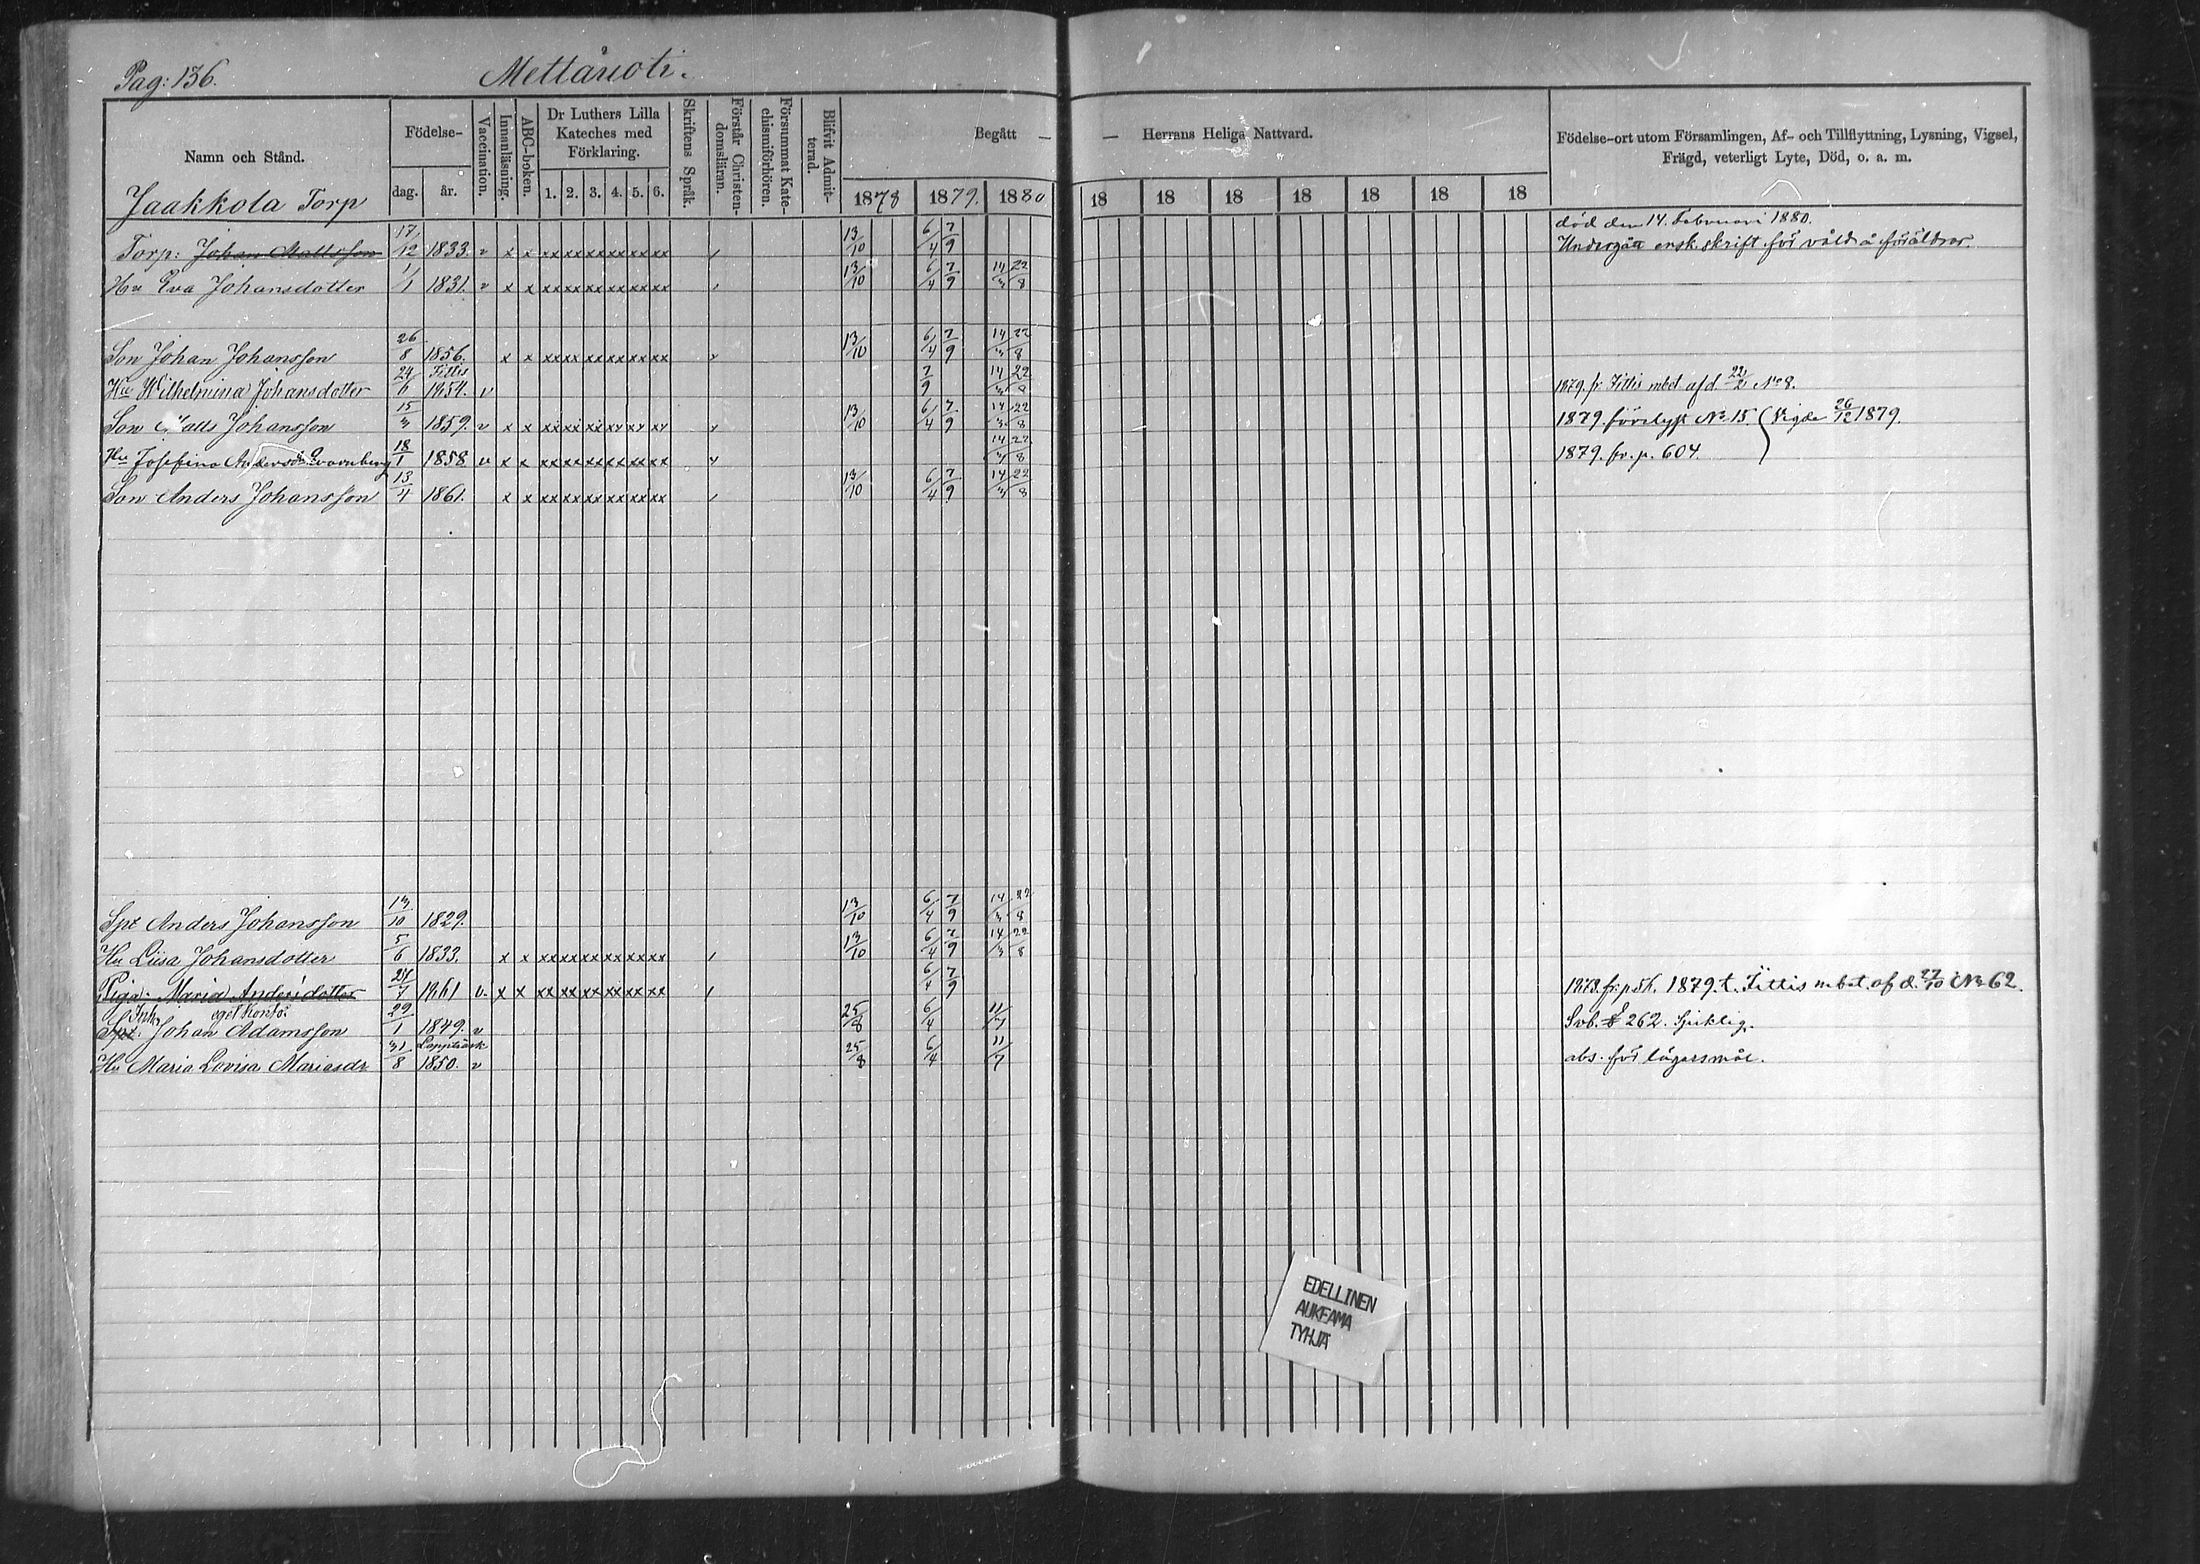 Pag: 136.
Mettänoti.
Namn och Stånd.
Födelse-
dag.
år.
Vaccination.
Innanläsning.
ABC-boken.
Dr Luthers Lilla
Kateches med
Förklaring.
1. 2. 3. 4. 5. 6.
Skriftens Språk.
Förstår Christen-
domsläran.
Försummat Kate-
chismiförhören.
Blifvit Admit-
terad.
Begått — — Herrans Heliga Nattvard.
1878 1879. 1880 18 18 18 18 18 18 18
Födelse-ort utom Församlingen, Af- och Tillflyttning, Lysning, Vigsel,
Frägd, veterligt Lyte, Död, o. a. m.
Jaakkola Torp
död den 14. Februari 1880.
Torp: Johan Mattsson 17/12 1833. v x x xx xx xx xx xx xx 13/10 6/4 7/9 Undergått ensk. skrift för våld å föräldrar
Hu Eva Johansdotter 1/1 1831. v x x xx xx xx xx xx xx 13/10 6/4 7/9 14/3 22/8
Son Johan Johansson 26/8 1856. x x xx xx xx xx xx xx 13/10 6/4 7/9 14/3 22/8
Hu Wilhelmina Johansdotter 24/6 Fittis 1854. v 7/9 14/3 22/8 1879. fr Fittis mbet af d 22/2 No 8.
Son Matts Johansson 15/3 1859. v x x xx xx xx xx xx xx 13/10 6/4 7/9 14/3 22/8 1879. förelyst No 15. Vigde 26/12 1879.
Hu Josefina Andersdr 18/1 1858 v x x xx xx xx xx xx xx 14/3 22/8 1879. fr. p. 604.
Son Anders Johansson 13/4 1861. x x xx xx xx xx xx xx 13/10 6/4 7/9 14/3 22/8
Spt Anders Johansson 13/10 1829. 13/10 6/4 7/9 14/3 22/8
Hu Liisa Johansdotter 5/6 1833. x x xx xx xx xx xx xx 13/10 6/4 7/9 14/3 22/8
Piga Maria Andersdotter 24/7 1861 v. x x xx xx xx xx xx xx 6/4 7/9 1879. t. Fittis m. bet. af d. 27/10 No 62.
Inh. eget konto
Spt. Johan Adamsson 29/1 1849. v 25/8 6/4 11/7 Svb. 262. Sjuklig.
Hu Maria Lovisa Mariasdr 31/8 Lappträsk 1850. v 25/8 6/4 11/7 abs. för lägersmål.
EDELLINEN
AUKEAMA
TYHJÄ